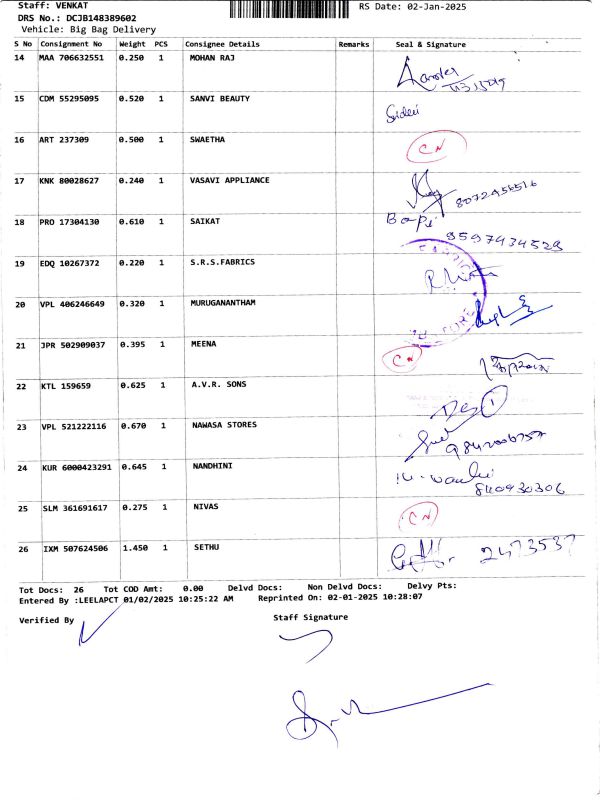 Staff: VENKAT
RS Date: 02-Jan-2025
DRS No.: DCJB148389602
Vehicle: Big Bag Delivery
S No Consignment No Weight PCS Consignee Details Remarks Seal & Signature
14 MAA 706632551 0.250 1 MOHAN RAJ
15 CDM 55295095 0.520 1 SANVI BEAUTY
16 ART 237309 0.500 1 SWAETHA CN
17 KNK 80028627 0.240 1 VASAVI APPLIANCE 8072956516
18 PRO 17304130 0.610 1 SAIKAT Bapi
9597434529
19 EDQ 10267372 0.220 1 S.R.S.FABRICS
20 VPL 406246649 0.320 1 MURUGANANTHAM
21 JPR 502909037 0.395 1 MEENA CN
22 KTL 159659 0.625 1 A.V.R. SONS
23 VPL 521222116 0.670 1 NAWASA STORES
24 KUR 6000423291 0.645 1 NANDHINI
840930306
25 SLM 361691617 0.275 1 NIVAS CN
26 IXM 507624506 1.450 1 SETHU 2473537
Tot Docs: 26 Tot COD Amt: 0.00 Delvd Docs: Non Delvd Docs: Delvy Pts:
Entered By :LEELAPCT 01/02/2025 10:25:22 AM Reprinted On: 02-01-2025 10:28:07
Verified By Staff Signature